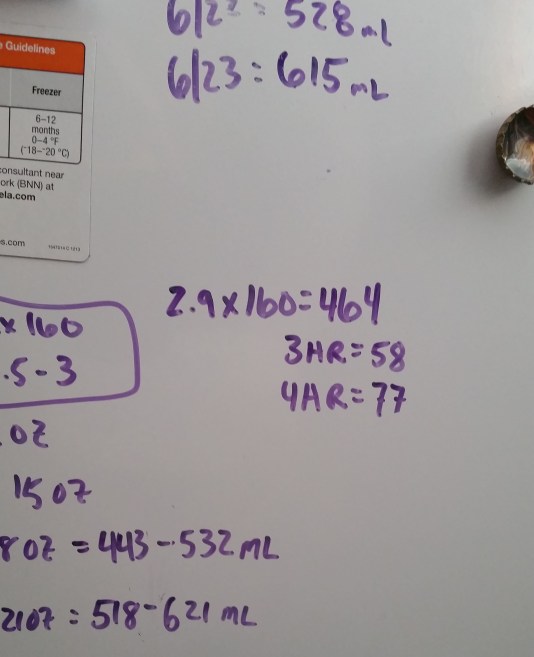 528 mL
6/23 = 615 mL
Guidelines
Freezer
6–12
months
0–4 °F
(-18–-20 °C)
consultant near
ork (BNN) at
ela.com
s.com
2.9 x 160 = 464
3HR = 58
4HR = 77
x 160
.5 - 3
oz
15 oz
8 oz = 443 - 532 mL
21oz = 518 - 621 mL